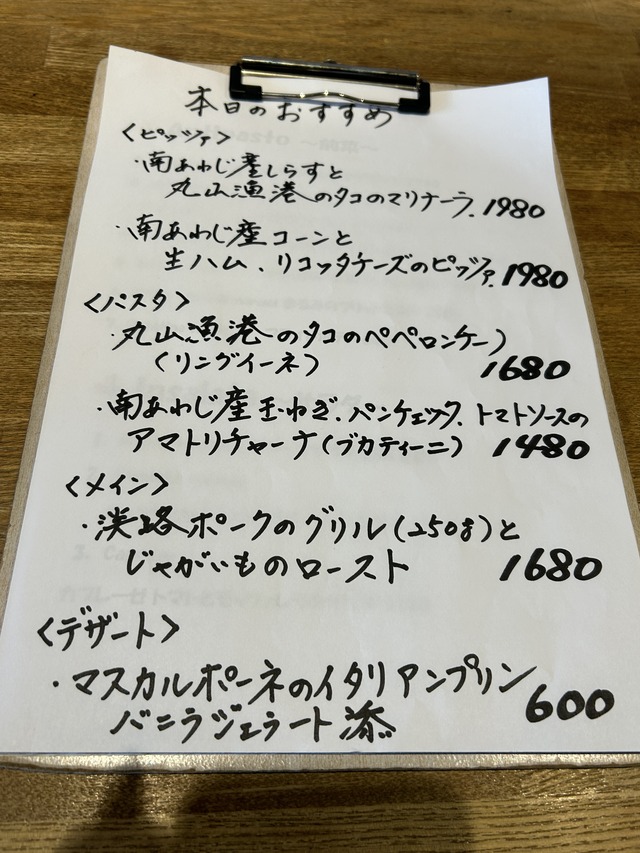 本日のおすすめ
<ピッツァ>
・南あわじ産しらすと
丸山漁港のタコのマリナーラ. 1980
・南あわじ産コーンと
生ハム、リコッタチーズのピッツァ. 1980
<パスタ>
・丸山漁港のタコのペペロンチーノ
(リングイーネ) 1680
・南あわじ産玉ねぎ、パンチェッタ、トマトソースの
アマトリチャーナ(ブカティーニ) 1480
<メイン>
・淡路ポークのグリル(250g)と
じゃがいものロースト 1680
<デザート>
・マスカルポーネのイタリアンプリン
バニラジェラート添 600